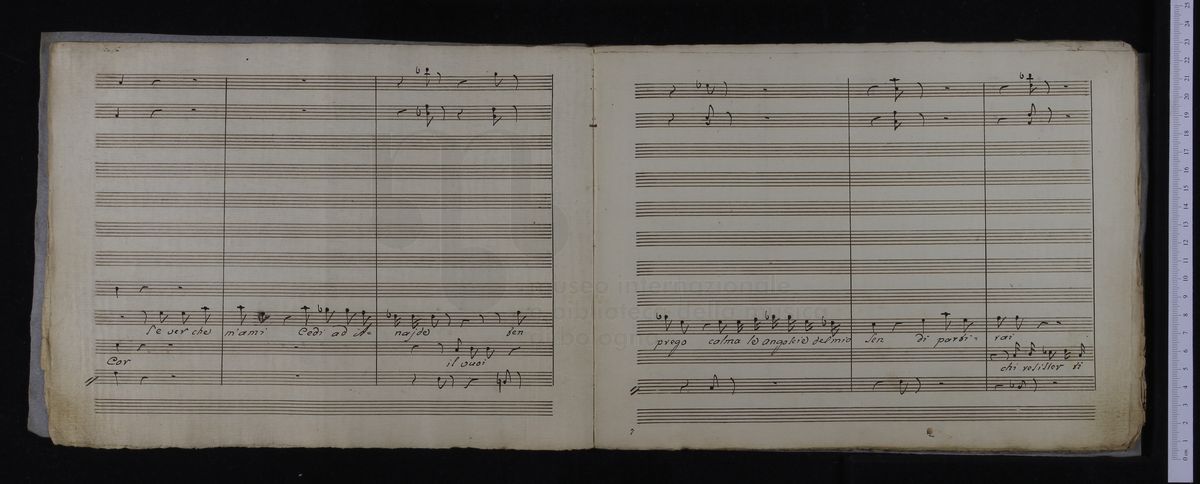 Se ver che m'ami Cedi ad A- najde ten
Cor il vuoi
prego calma le angoscie del mio Sen Di parti- rai
chi resister ti
museo internazionale
e biblioteca della musica
di bologna